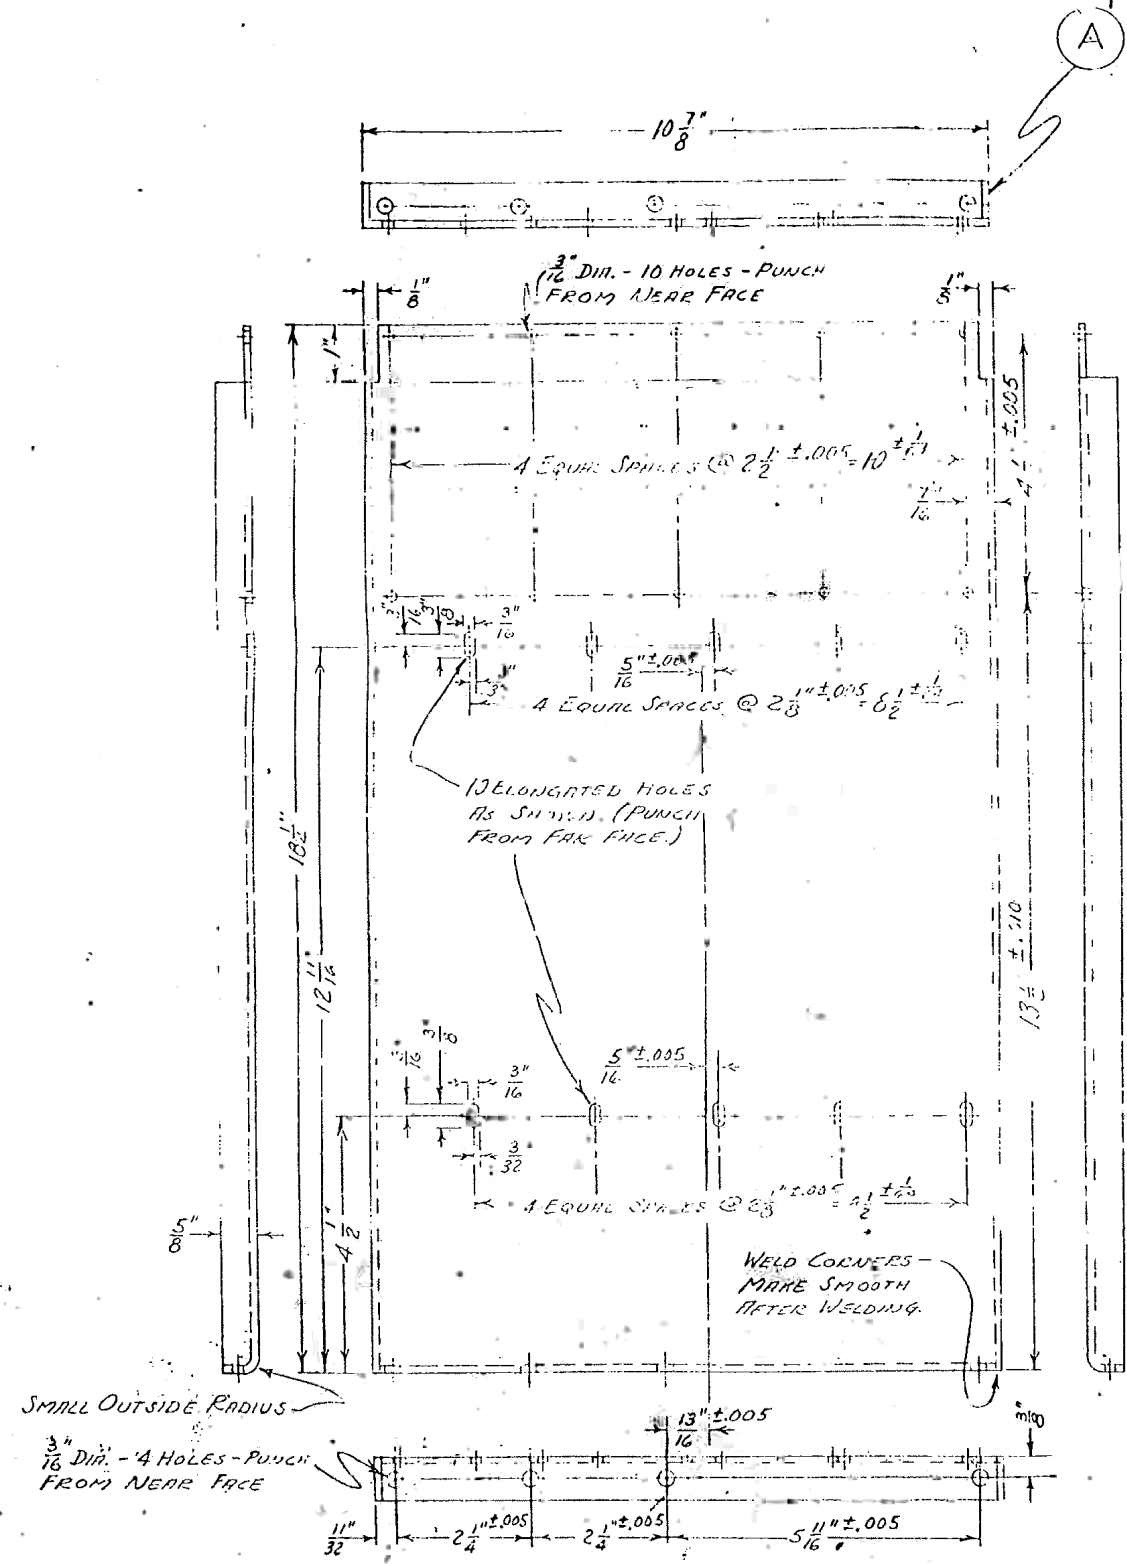 A
10 7/8"
3/16" DIA. - 10 HOLES - PUNCH
FROM NEAR FACE
1/8"
1/8"
1"
4 EQUAL SPACES @ 2 1/2 ±.005 = 10
±.005
7/16"
3/8"
3/16"
5/16" ±.005
4 EQUAL SPACES @ 2 1/8" ±.005 =
ELONGATED HOLES
AS SHOWN. (PUNCH
FROM FAR FACE.)
18 1/2"
12 11/16"
13
3/8
3/16"
5/16 ±.005
3/32
4 EQUAL SPACES @ ±.005 =
4 1/2"
5/8"
WELD CORNERS -
MAKE SMOOTH
AFTER WELDING.
SMALL OUTSIDE RADIUS
3/16" DIA. - 4 HOLES - PUNCH
FROM NEAR FACE
13/16" ±.005
3/8"
11/32"
2 1/4" ±.005
2 1/4" ±.005
5 11/16" ±.005